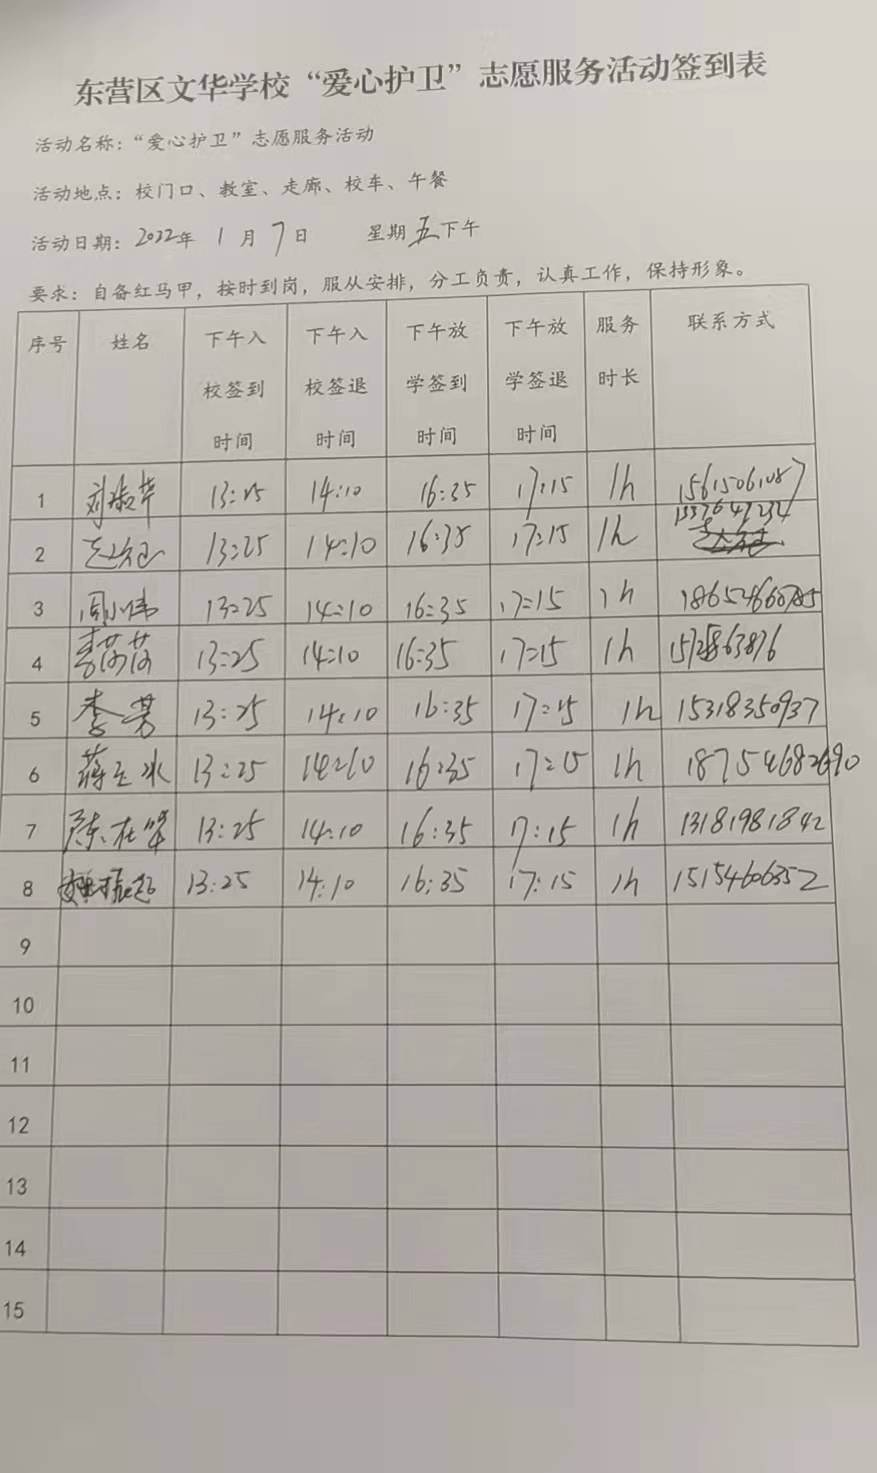 东营区文华学校“爱心护卫”志愿服务活动签到表
活动名称：“爱心护卫”志愿服务活动
活动地点：校门口、教室、走廊、校车、午餐
活动日期：2022年 1月 7日 星期五下午
要求：自备红马甲，按时到岗，服从安排，分工负责，认真工作，保持形象。
序号 姓名 下午入校签到时间 下午入校签退时间 下午放学签到时间 下午放学签退时间 服务时长 联系方式
1 刘淑华 13:25 14:10 16:35 17:15 1h 15615061087
2 13:25 14:10 16:35 17:15 1h
3 周小伟 13:25 14:10 16:35 17:15 1h
4 李茜茜 13:25 14:10 16:35 17:15 1h
5 李芳 13:25 14:10 16:35 17:15 1h 15318350937
6 蒋玉冰 13:25 14:10 16:35 17:15 1h
7 陈在军 13:25 14:10 16:35 17:15 1h 13181981842
8 13:25 14:10 16:35 17:15 1h 15154606352
9
10
11
12
13
14
15